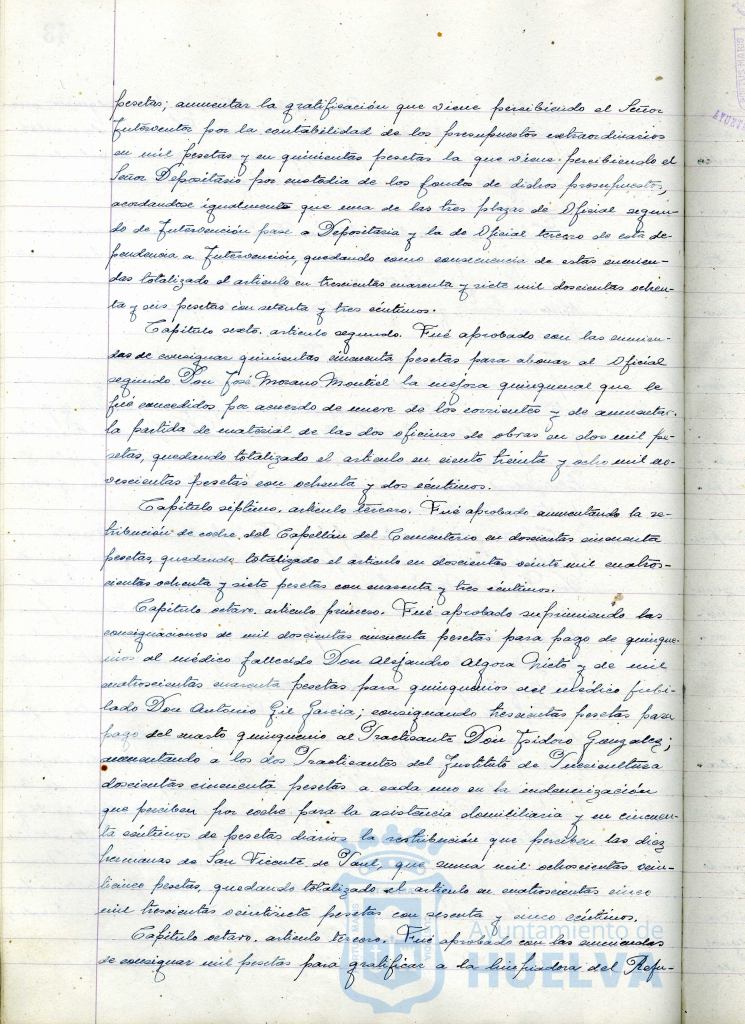 pesetas; aumentar la gratificación que viene percibiendo el Señor
Interventor por la contabilidad de los presupuestos extraordinarios
en mil pesetas y en quinientas pesetas la que viene percibiendo el
Señor Depositario por custodia de los fondos de dichos presupuestos,
acordandose igualmente que una de las tres plazas de Oficial segun-
do de Intervención pase a Depositaria y la de Oficial tercero de esta de-
pendencia a Intervención, quedando como consecuencia de estas enmien-
das totalizado el articulo en trescientas cuarenta y siete mil doscientas ochen-
ta y seis pesetas con setenta y tres céntimos.
Capítulo sexto. artículo segundo. Fué aprobado con las enmien-
das de consignar quinientas cincuenta pesetas para abonar al Oficial
segundo Don José Morano Montiel la mejora quinquenal que le
fué concedidos por acuerdo de nueve de los corrientes y de aumentar
la partida de material de las dos oficinas de obras en dos mil pe-
setas, quedando totalizado el articulo en ciento treinta y ocho mil no-
vescientas pesetas con ochenta y dos céntimos.
Capítulo séptimo. artículo tercero. Fué aprobado aumentando la re-
tribución de coche del Capellán del Cementerio en doscientas cincuenta
pesetas, quedando totalizado el articulo en doscientas veinte mil cuatros-
cientas ochenta y siete pesetas con cuarenta y tres céntimos.
Capítulo octavo. artículo primero. Fué aprobado suprimiendo las
consignaciones de mil doscientas cincuenta pesetas para pago de quinque-
nios al médico fallecido Don Alejandro Algora Nieto y de mil
cuatroscientas cuarenta pesetas para quinquenios del médico jubi-
lado Don Antonio Gil Garcia; consignando trescientas pesetas para
pago del cuarto quinquenio al Practicante Don Isidoro Gonzalez;
aumentando a los dos Practicantes del Instituto de Puericultura
doscientas cincuenta pesetas a cada uno en la indemnización
que perciben por coche para la asistencia domiciliaria y en cincuen-
ta céntimos de pesetas diarios la retribución que perciben las diez
hermanas de San Vicente de Paul, que suma mil ochoscientas vein-
ticinco pesetas, quedando totalizado el articulo en cuatroscientas cinco
mil trescientas veintisiete pesetas con sesenta y cinco céntimos.
Capítulo octavo. artículo tercero. Fué aprobado con las enmiendas
de consignar mil pesetas para gratificar a la limpiadora del Refu-
Ayuntamiento de
HUELVA